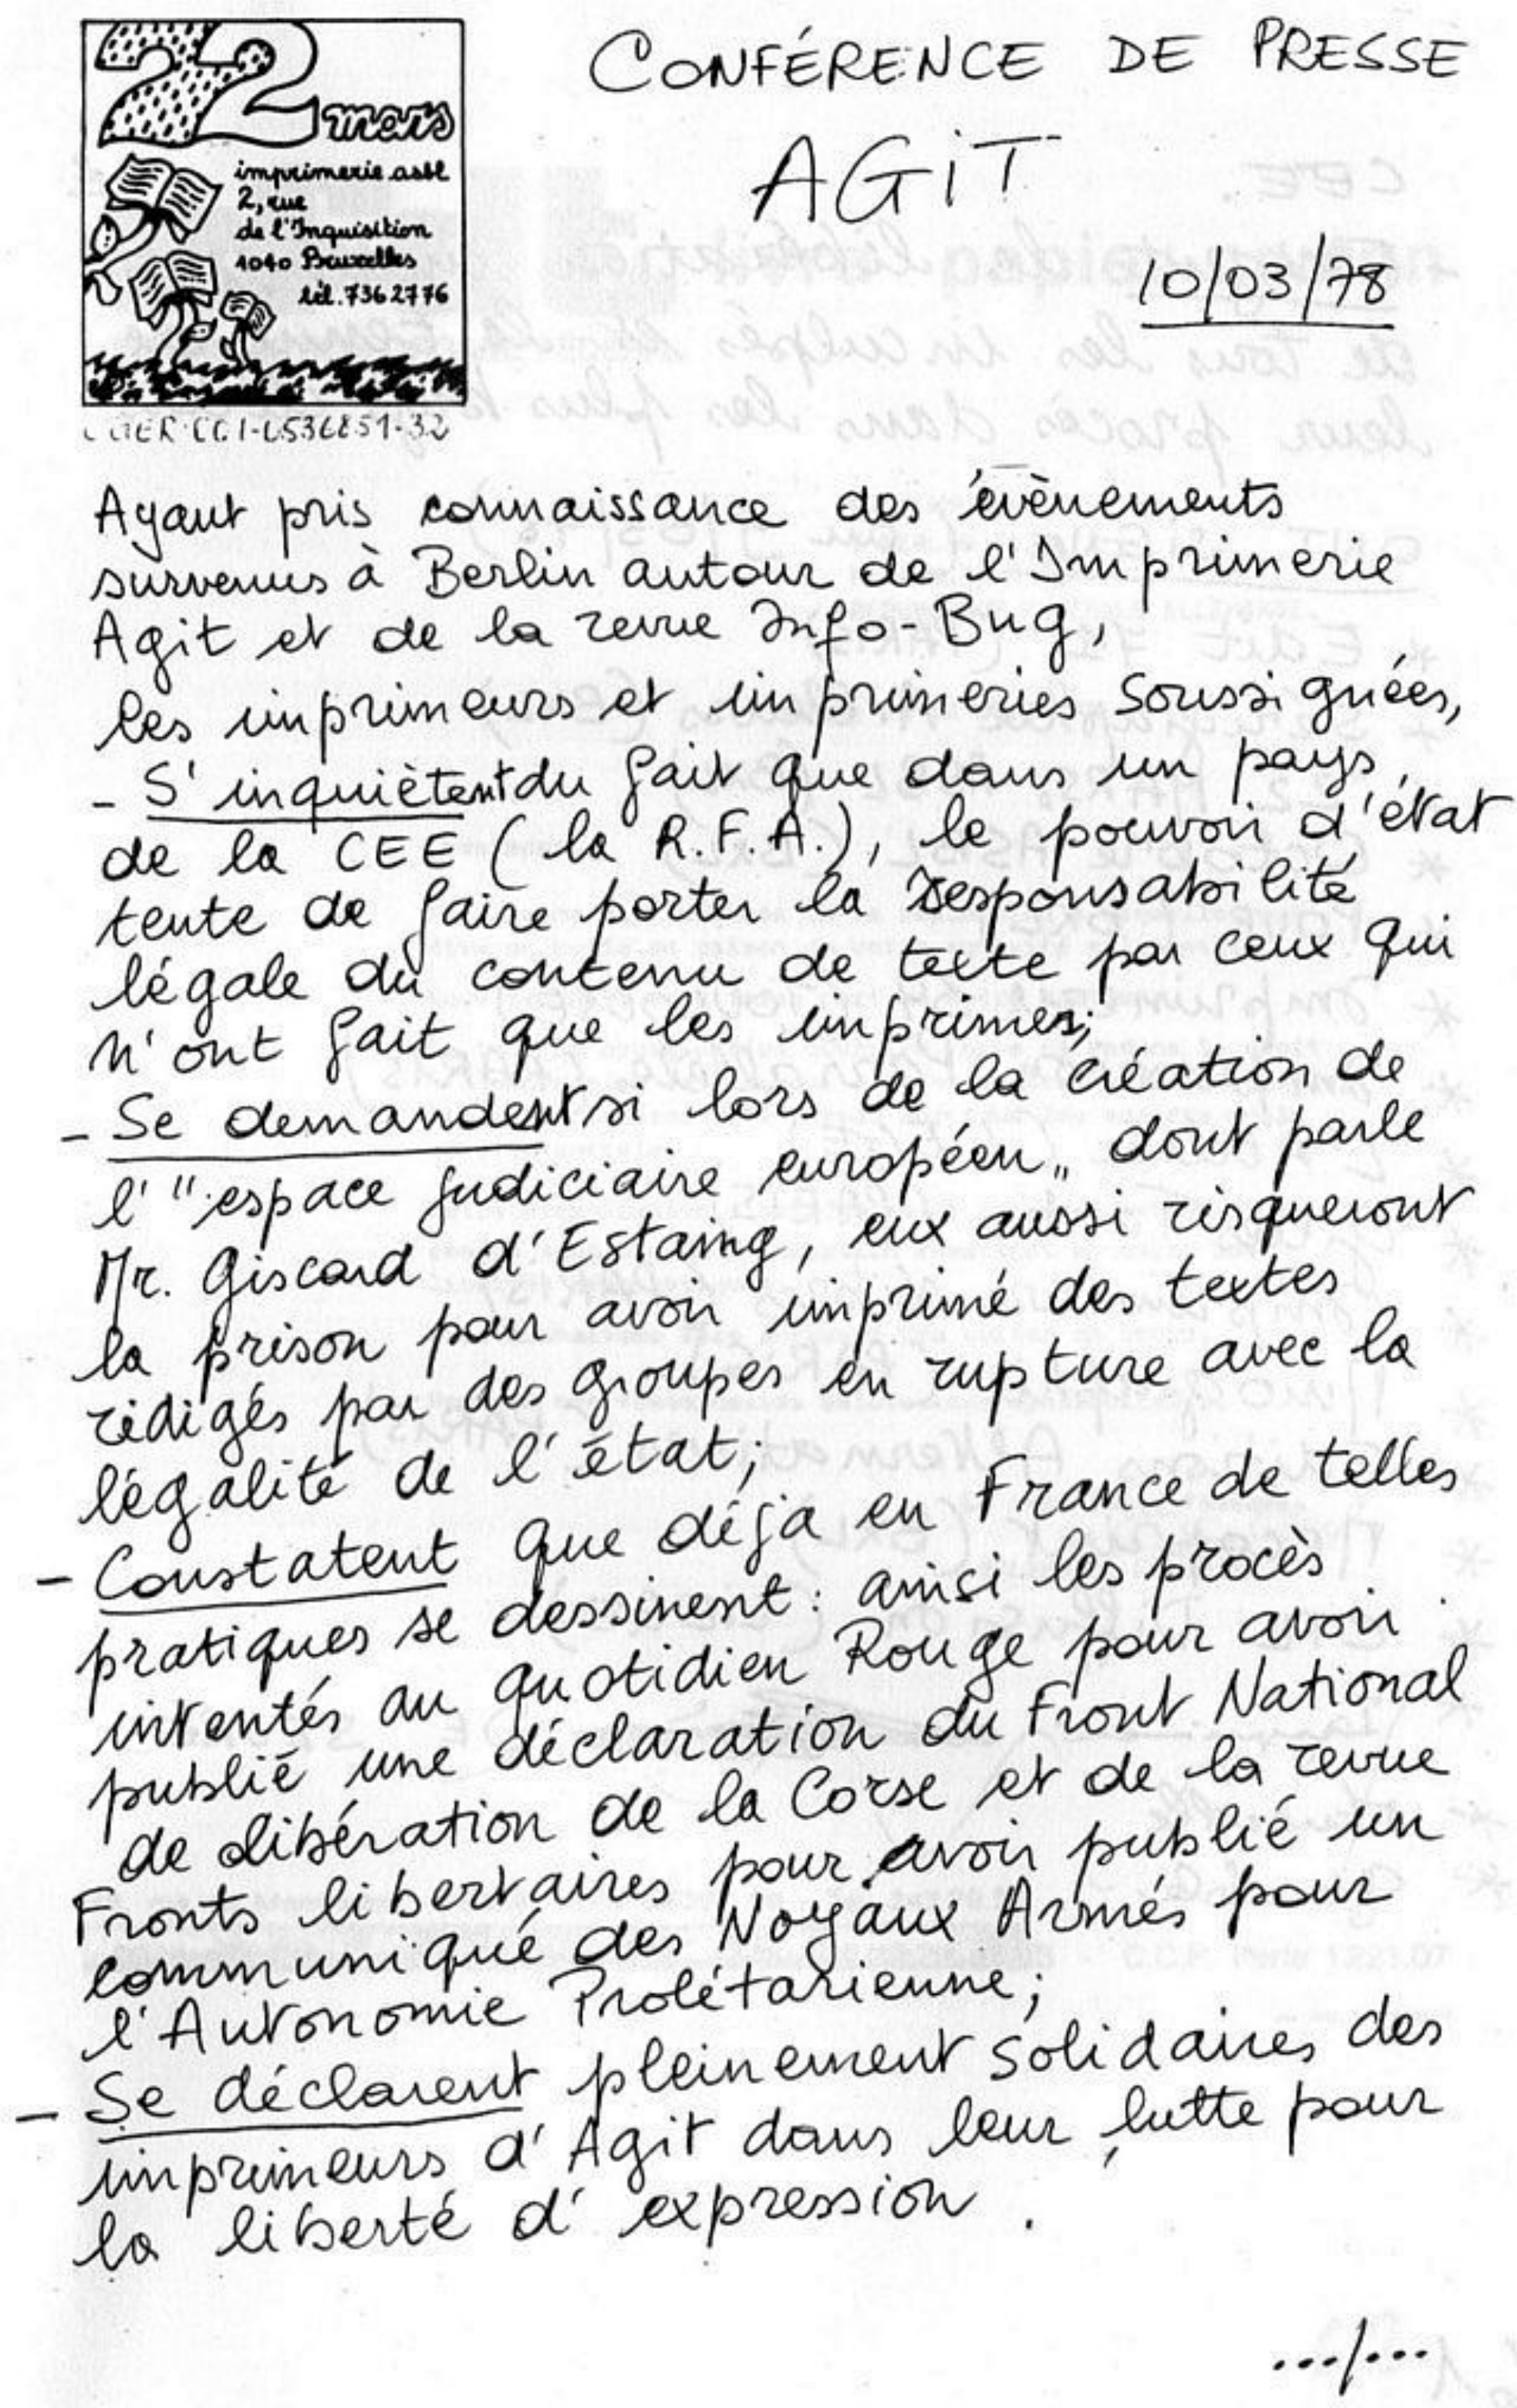 22 mars
imprimerie asbl
2, rue
de l'Inquisition
1040 Bruxelles
tél. 736 27 76
CONFÉRENCE DE PRESSE
AGIT
10/03/78
Ayant pris connaissance des évènements
survenus à Berlin autour de l'Imprimerie
Agit et de la revue Info-Bug,
les imprimeurs et imprimeries soussignées,
- S'inquiètent du fait que dans un pays
de la CEE (la R.F.A.), le pouvoir d'état
tente de faire porter la responsabilité
légale du contenu de texte par ceux qui
n'ont fait que les imprimer;
- Se demandent si lors de la création de
l'"espace judiciaire européen" dont parle
Mr. Giscard d'Estaing, eux aussi risqueront
la prison pour avoir imprimé des textes
rédigés par des groupes en rupture avec la
légalité de l'état;
- Constatent que déjà en France de telles
pratiques se dessinent : ainsi les procès
intentés au quotidien Rouge pour avoir
publié une déclaration du Front National
de libération de la Corse et de la revue
Fronts libertaires pour avoir publié un
communiqué des Noyaux Armés pour
l'Autonomie Prolétarienne;
- Se déclarent pleinement solidaires des
imprimeurs d'Agit dans leur lutte pour
la liberté d'expression.
.../...